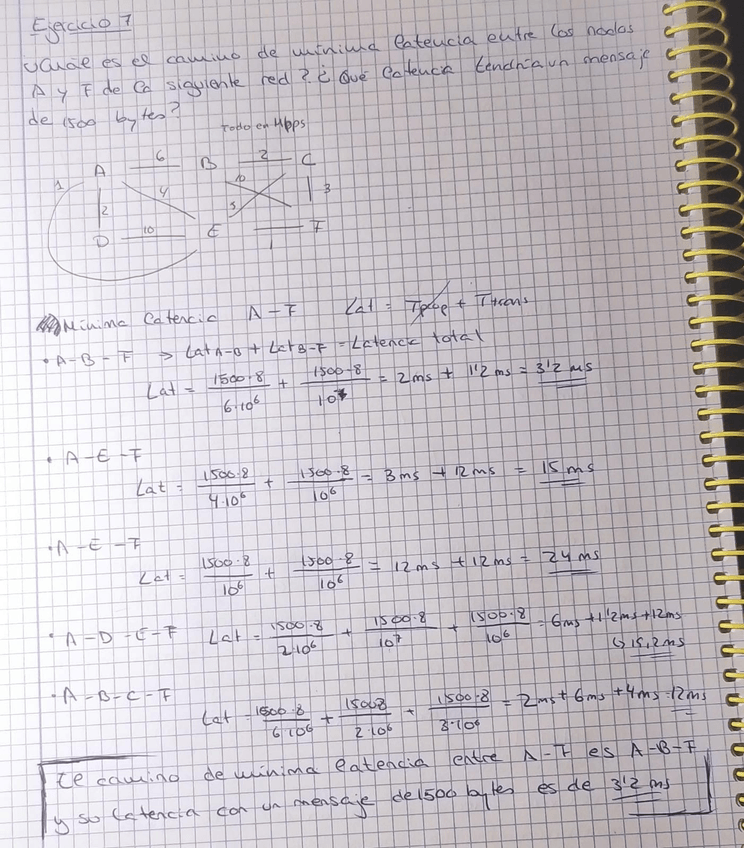 Ejercicio 7
¿Cuál es el camino de mínima latencia entre los nodos
A y F de la siguiente red? ¿Qué latencia tendría un mensaje
de 1500 bytes?
Todo en Mbps
A 6 B 2 C
1 4 10 3
2 5
D 10 E 1 F
Mínima latencia A-F Lat = Tprop + Ttrans
• A-B-F => LatA-B + LatB-F = Latencia total
Lat = 1500·8/6·10⁶ + 1500·8/10⁷ = 2ms + 1'2 ms = 3'2 ms
• A-E-F
Lat = 1500·8/4·10⁶ + 1500·8/10⁶ = 3ms + 12ms = 15 ms
• A-E-F
Lat = 1500·8/10⁶ + 1500·8/10⁶ = 12ms + 12ms = 24 ms
• A-D-E-F Lat = 1500·8/2·10⁶ + 1500·8/10⁷ + 1500·8/10⁶ = 6ms + 1'2ms + 12ms
↳ 19,2ms
• A-B-C-F
Lat = 1500·8/6·10⁶ + 15008/2·10⁶ + 1500·8/3·10⁶ = 2ms + 6ms + 4ms = 12ms
El camino de mínima latencia entre A-F es A-B-F
y su latencia con un mensaje de 1500 bytes es de 3'2 ms